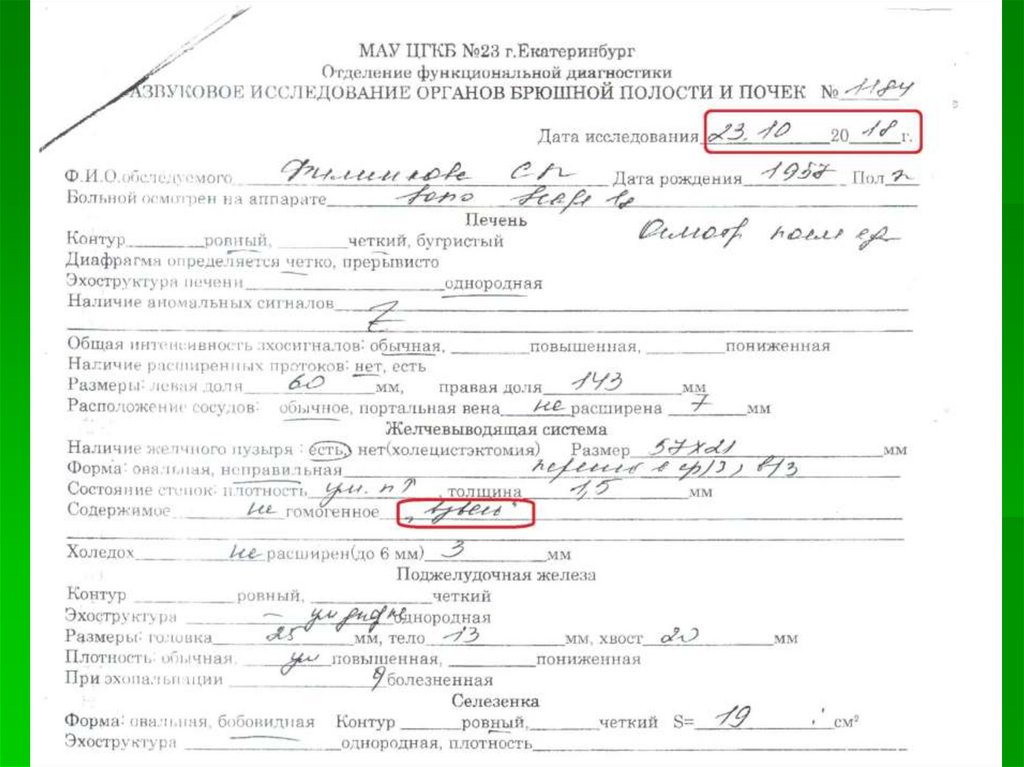 МАУ ЦГКБ №23 г.Екатеринбург
Отделение функциональной диагностики
АЗВУКОВОЕ ИССЛЕДОВАНИЕ ОРГАНОВ БРЮШНОЙ ПОЛОСТИ И ПОЧЕК № 1184
Дата исследования 23.10 2018 г.
Ф.И.О.обследуемого СП Дата рождения 1957 Пол
Больной осмотрен на аппарате
Печень
Контур ровный, четкий, бугристый Осмотр после
Диафрагма определяется четко, прерывисто
Эхоструктура печени однородная
Наличие аномальных сигналов
Общая интенсивность эхосигналов: обычная, повышенная, пониженная
Наличие расширенных протоков: нет, есть
Размеры: левая доля 60 мм, правая доля 143 мм
Расположение сосудов: обычное, портальная вена не расширена 7 мм
Желчевыводящая система
Наличие желчного пузыря : есть, нет(холецистэктомия) Размер 57x21 мм
Форма: овальная, неправильная перегиб в ср/3, в/3
Состояние стенок: плотность ум. п↑, толщина 1,5 мм
Содержимое не гомогенное „взвесь"
Холедох не расширен(до 6 мм) 3 мм
Поджелудочная железа
Контур ровный, четкий
Эхоструктура однородная
Размеры: головка 25 мм, тело 13 мм, хвост 20 мм
Плотность: обычная, ум повышенная, пониженная
При эхопальпации болезненная
Селезенка
Форма: овальная, бобовидная Контур ровный, четкий S= 19 см²
Эхоструктура однородная, плотность